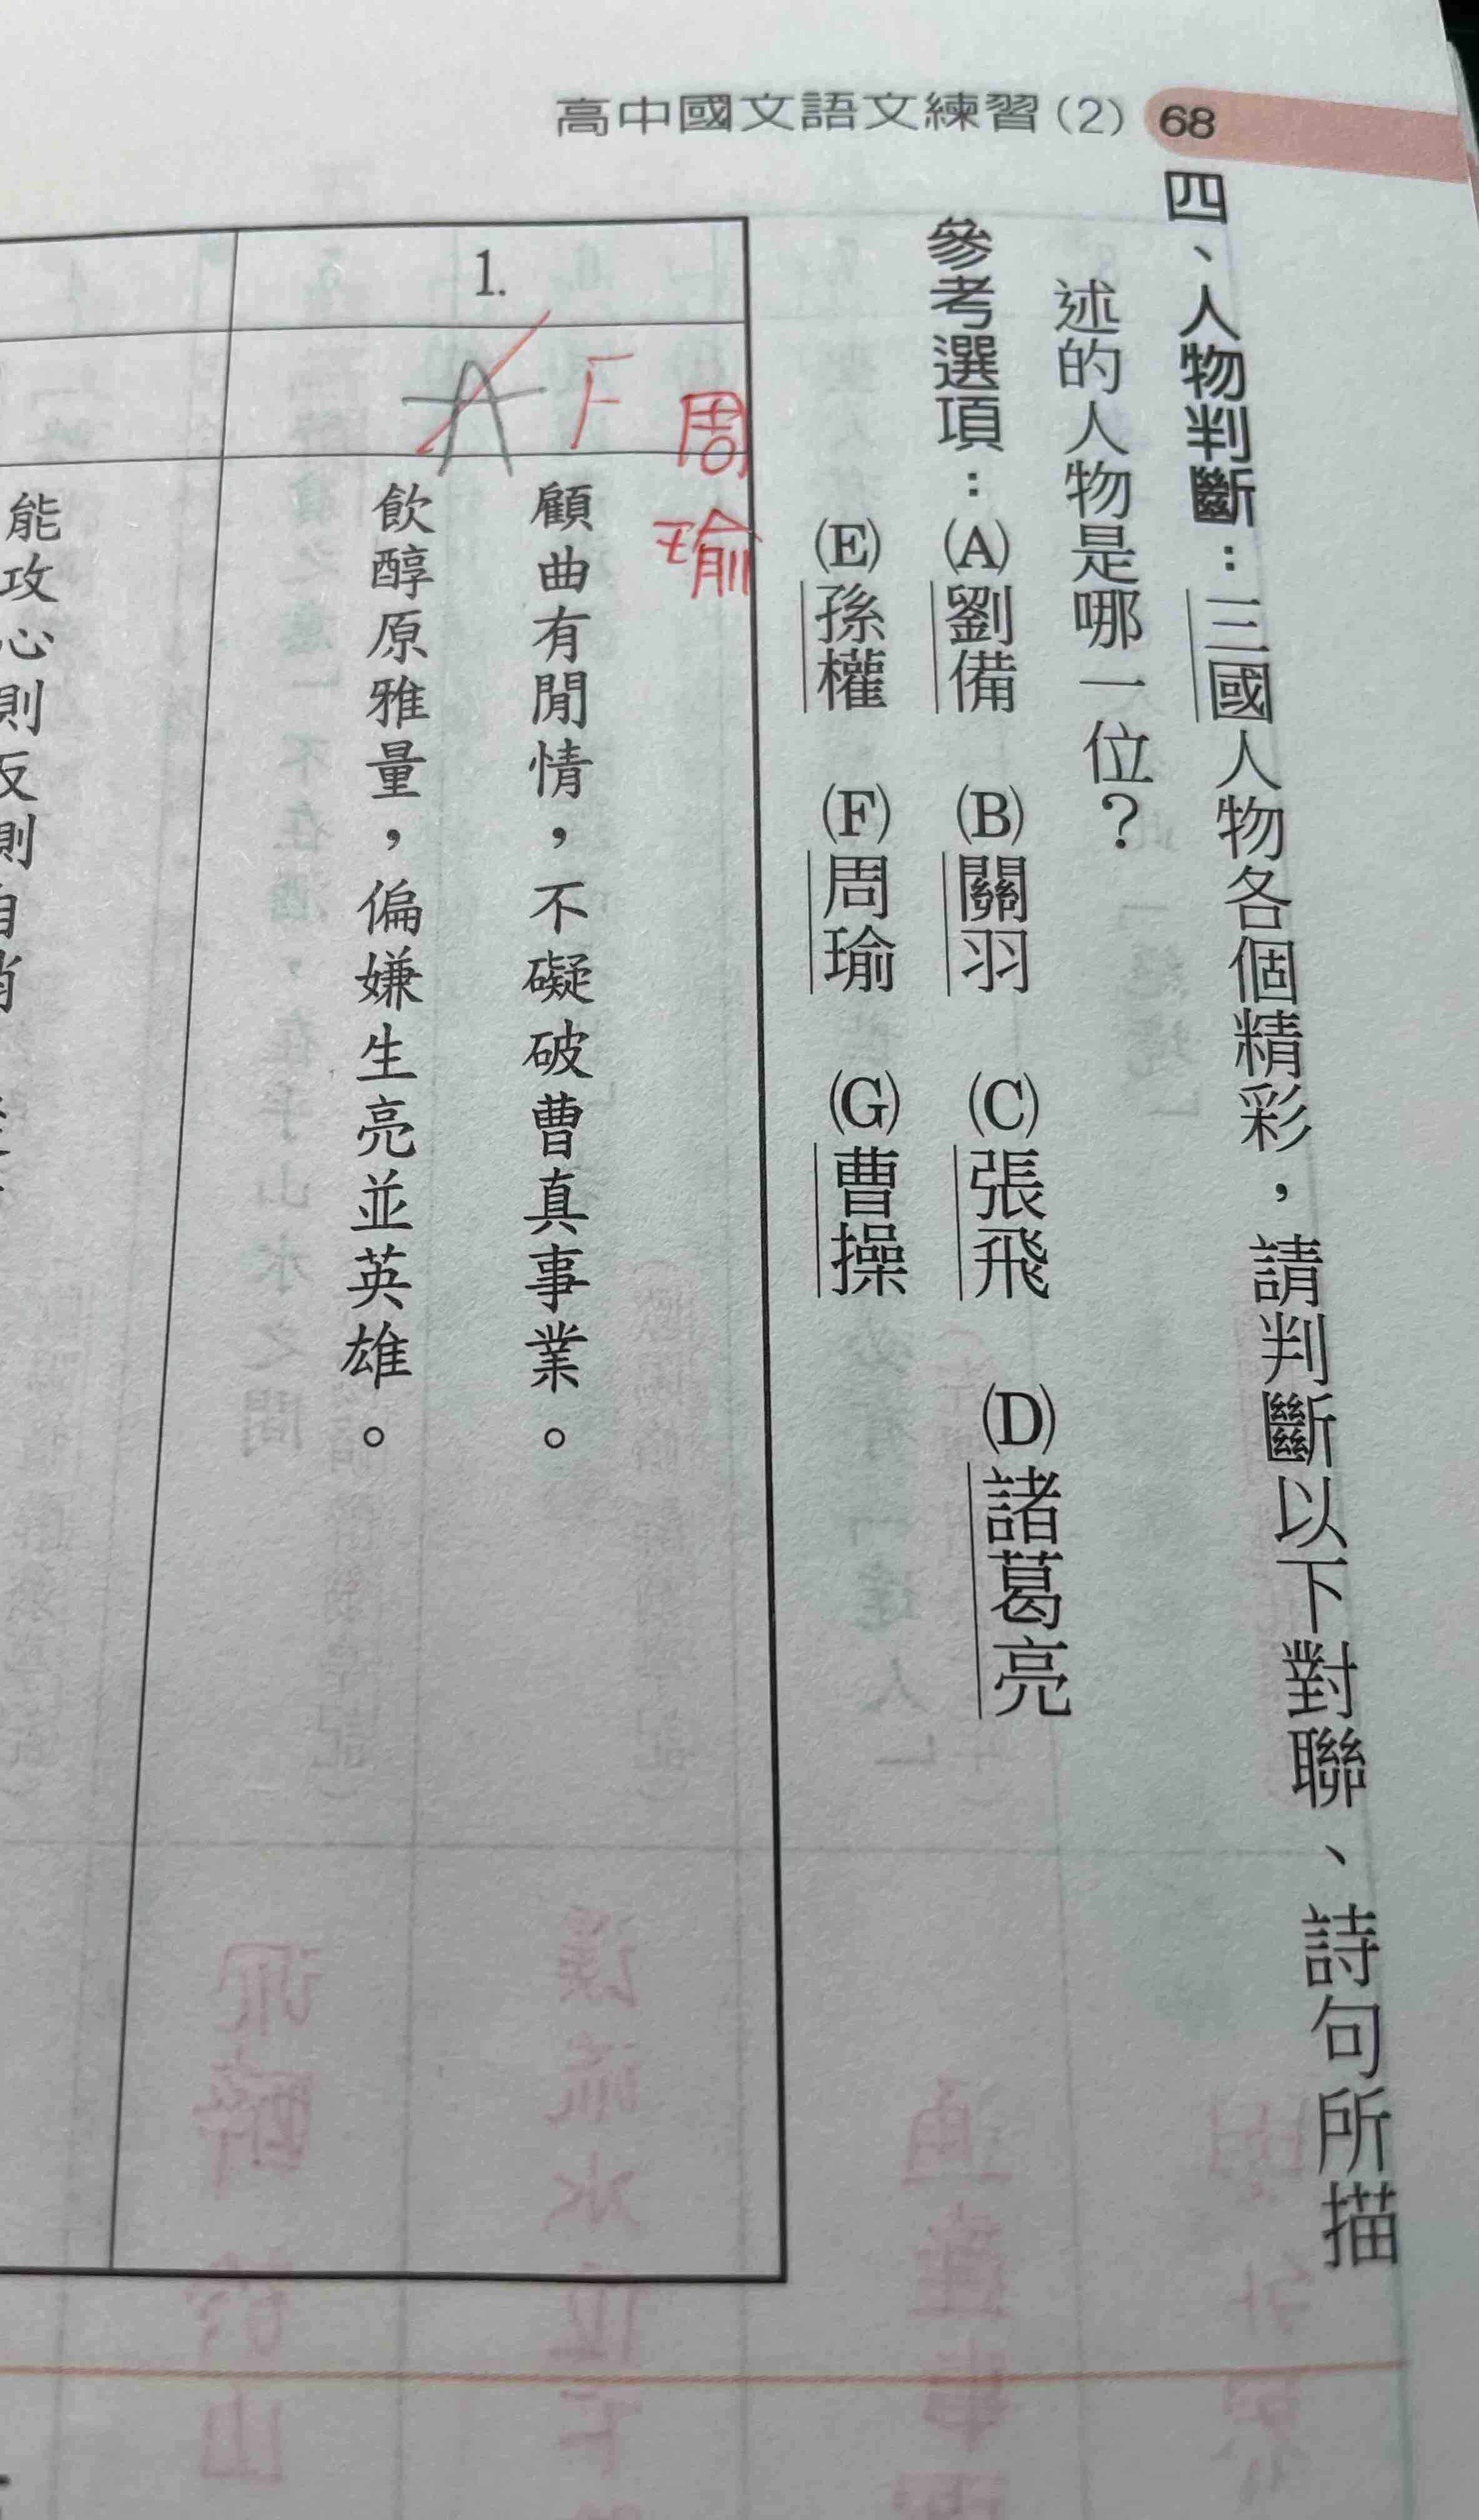 高中國文語文練習(2) 68
四、人物判斷：三國人物各個精彩，請判斷以下對聯、詩句所描
述的人物是哪一位？
參考選項：(A)劉備 (B)關羽 (C)張飛 (D)諸葛亮
(E)孫權 (F)周瑜 (G)曹操
1.
A F 周瑜
顧曲有閒情，不礙破曹真事業。
飲醇原雅量，偏嫌生亮並英雄。
能攻心則反側自消